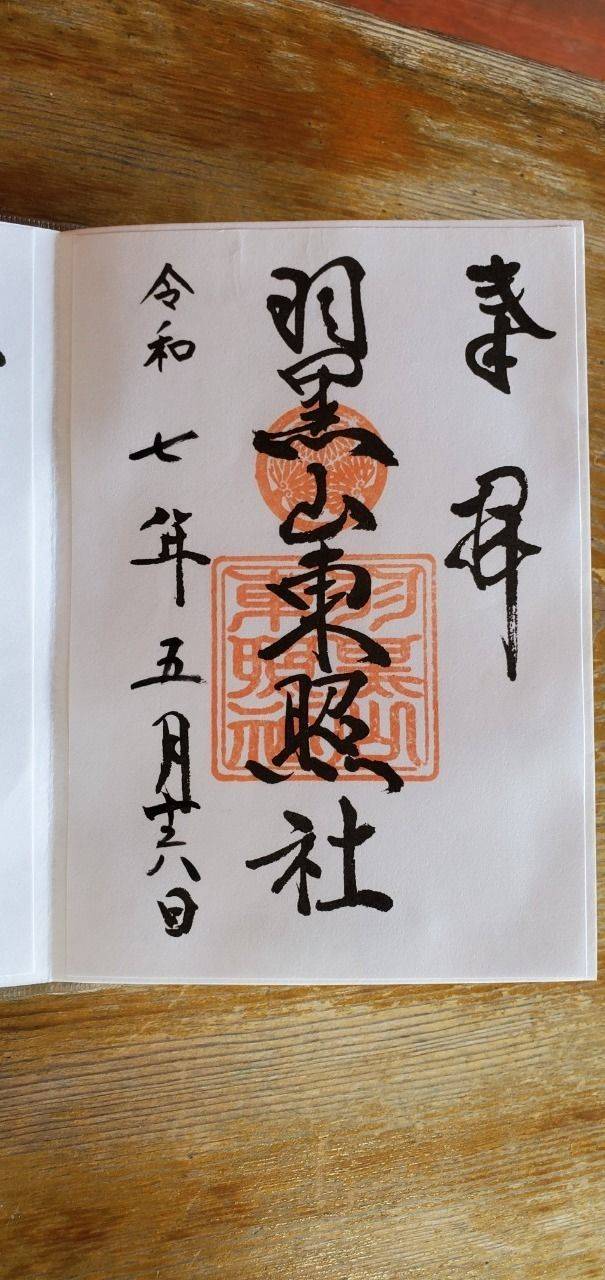 奉拝
羽黒山東照社
羽黒山
東照社
令和七年五月廿六日